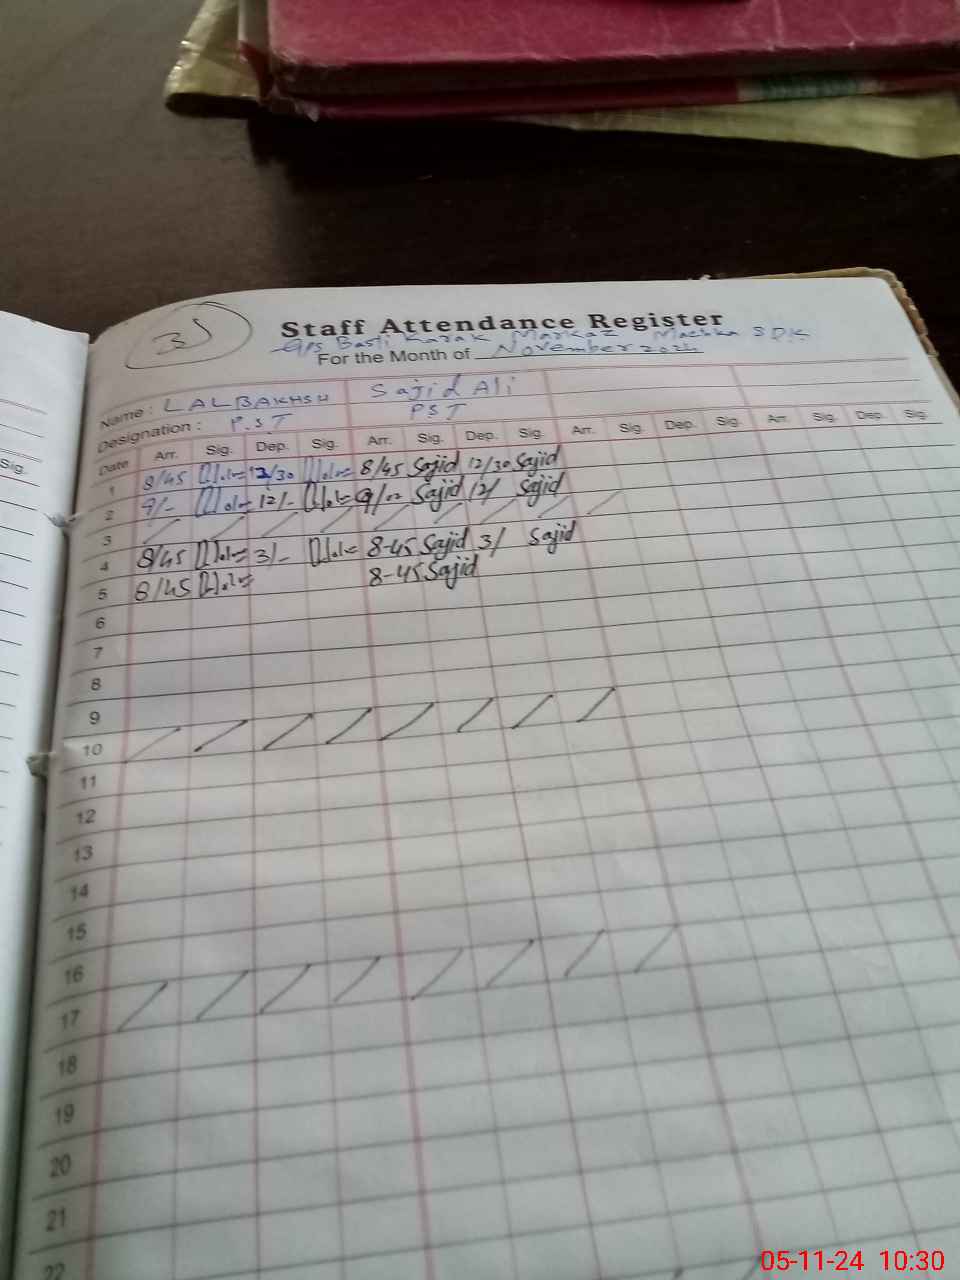 Staff Attendance Register
G/s Basti Karak Markaz Machka SDK
For the Month of November 2024
Name : LAL BAKHSH Sajid Ali
Designation : P.ST PST
Date Arr. Sig. Dep. Sig. Arr. Sig. Dep. Sig. Arr. Sig. Dep. Sig. Arr. Sig. Dep. Sig.
1 8/45 12/30 8/45 Sajid 12/30 Sajid
2 9/- 12/- 9/00 Sajid 12/ Sajid
3
4 8/45 3/- 8-45 Sajid 3/ Sajid
5 8/45 8-45 Sajid
6
7
8
9
10
11
12
13
14
15
16
17
18
19
20
21
22
Sig.
05-11-24 10:30